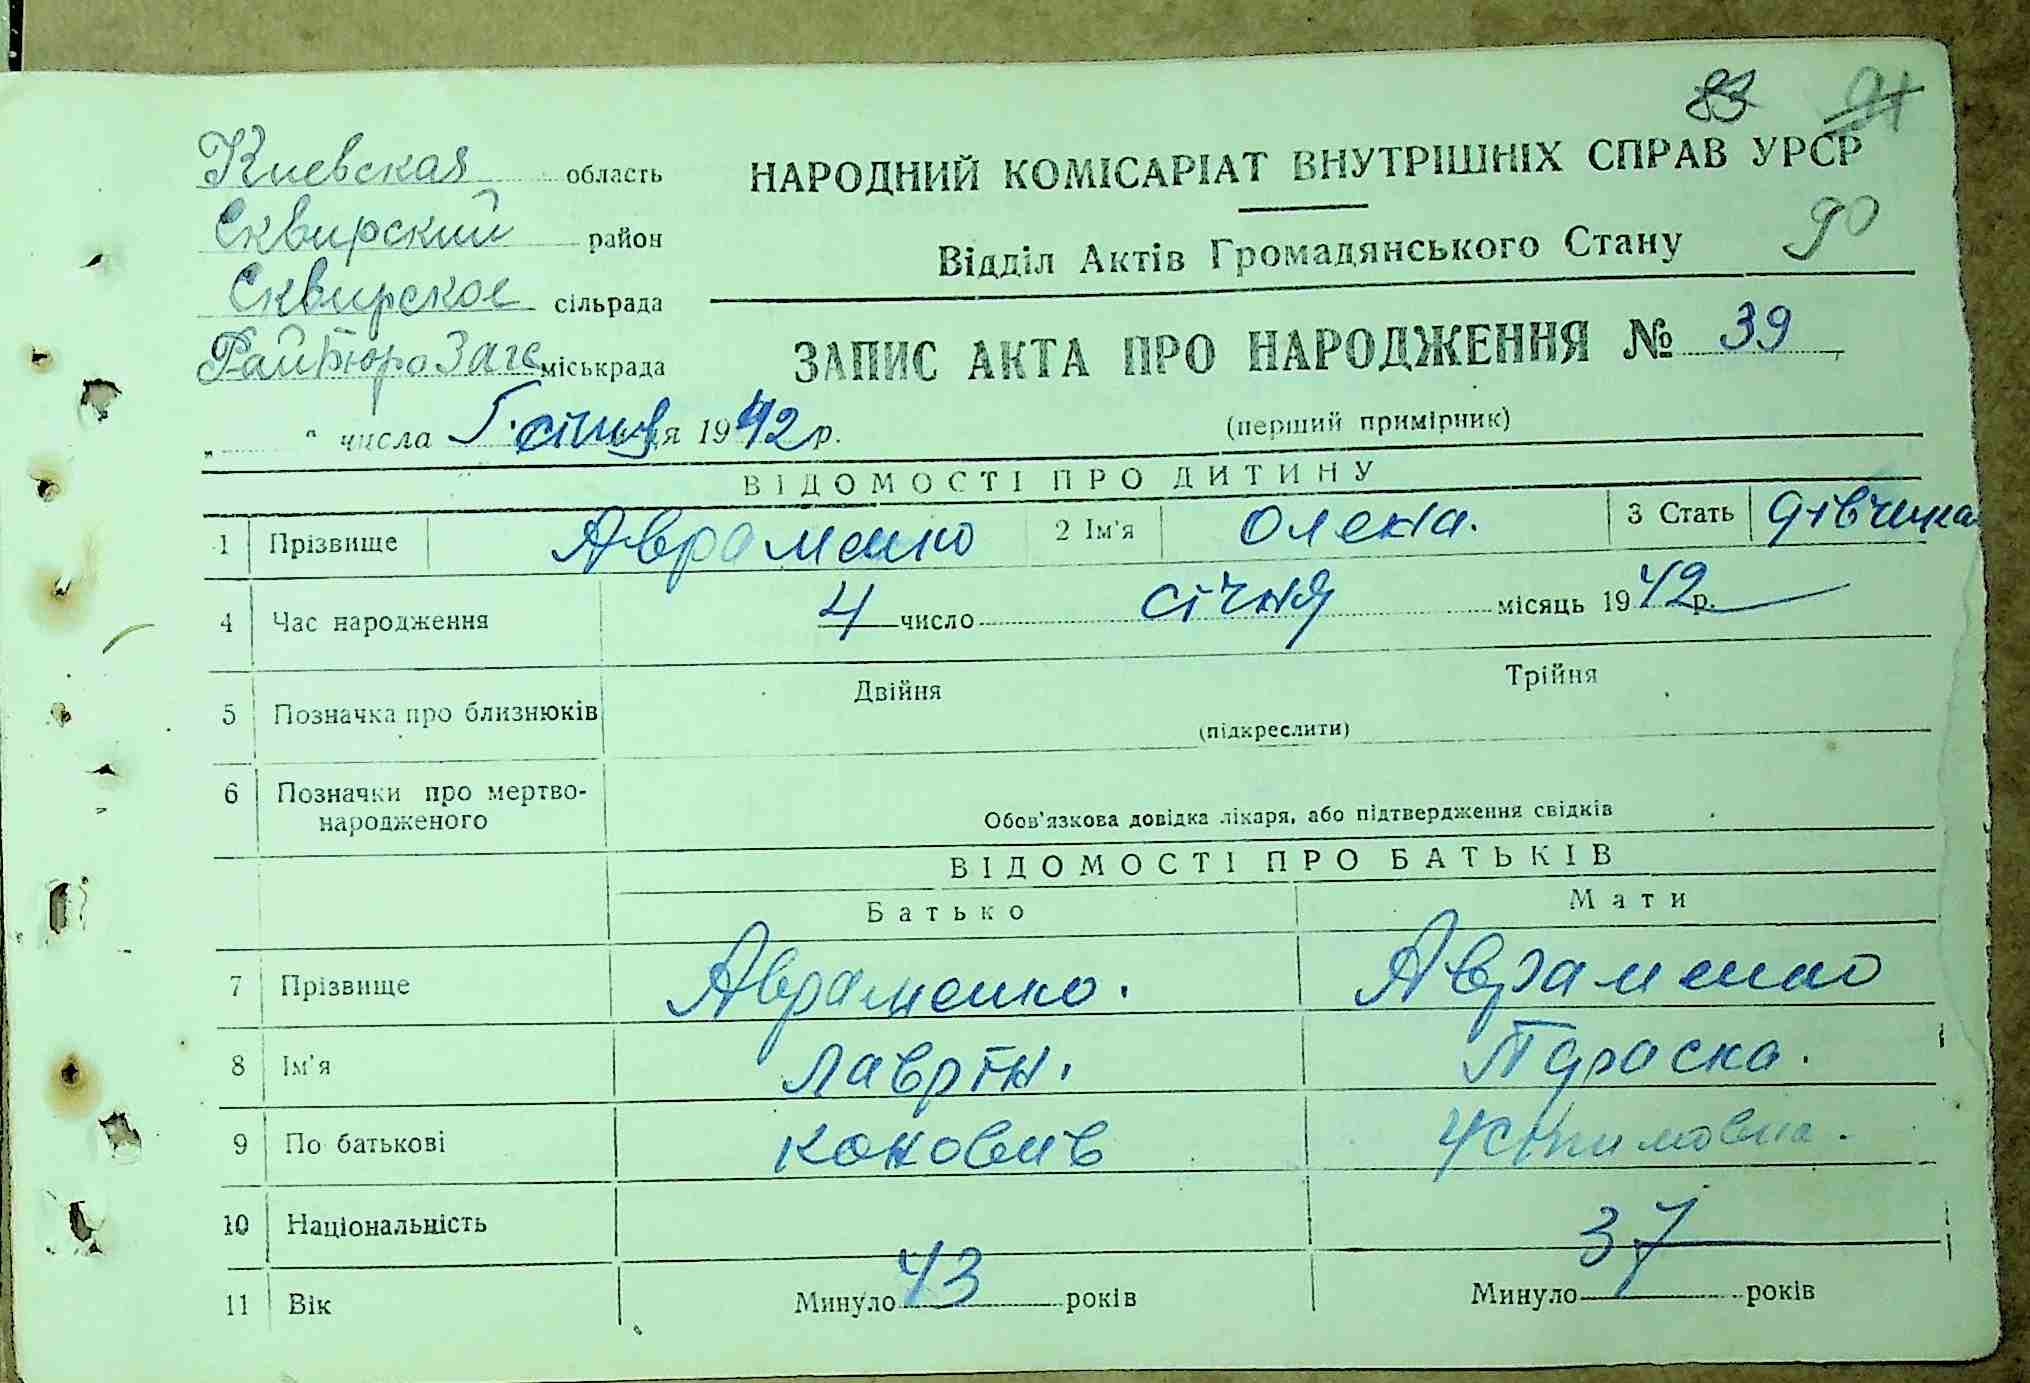 83 91
Киевская область
НАРОДНИЙ КОМІСАРІАТ ВНУТРІШНІХ СПРАВ УРСР
Сквирский район
Відділ Актів Громадянського Стану 90
Сквирское сільрада
Райбюро Загс міськрада
ЗАПИС АКТА ПРО НАРОДЖЕННЯ № 39
„ “ числа 5. січня 1942 р.
(перший примірник)
ВІДОМОСТІ ПРО ДИТИНУ
1 Прізвище Авраменко 2 Ім'я Олена. 3 Стать дівчина
4 Час народження 4 число січня місяць 1942 р.
5 Позначка про близнюків Двійня Трійня
(підкреслити)
6 Позначки про мертво-
народженого
Обов'язкова довідка лікаря, або підтвердження свідків
ВІДОМОСТІ ПРО БАТЬКІВ
Батько Мати
7 Прізвище Авраменко. Авраменко
8 Ім'я Лаврін. Параска.
9 По батькові Конович Устимовна.
10 Національність
11 Вік Минуло 43 років Минуло 37 років